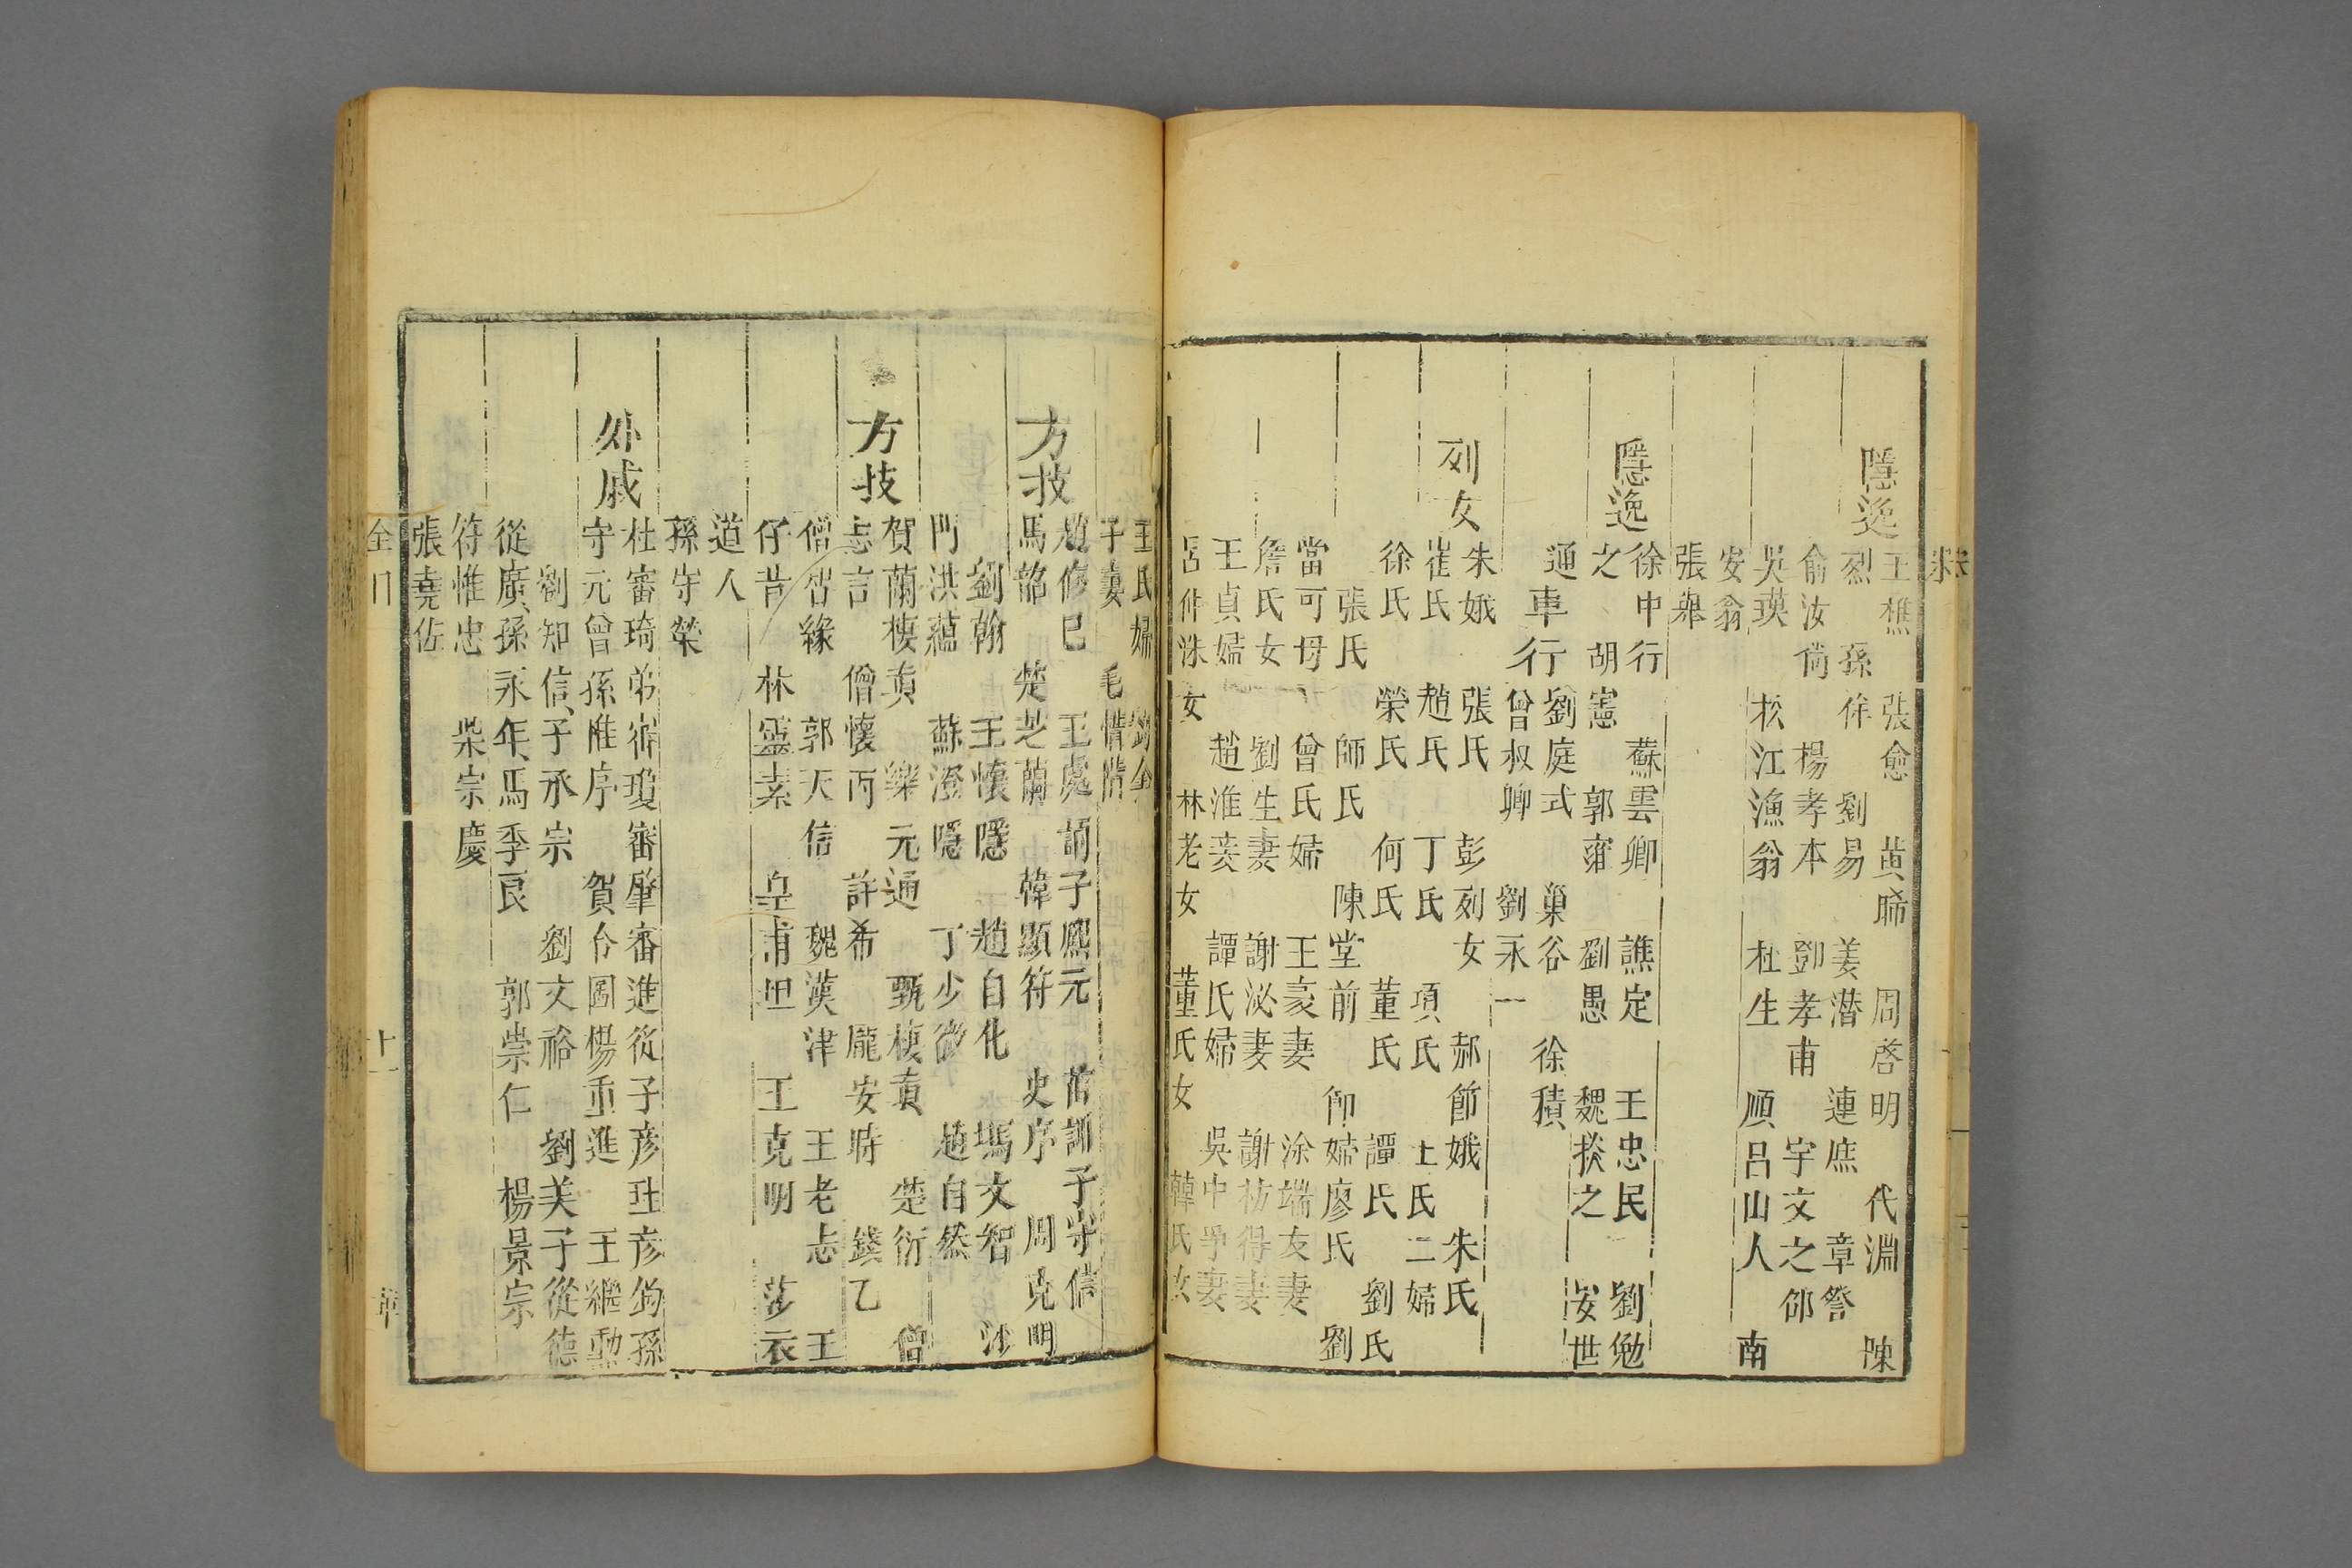 宋
隱逸
王樵 張愈 黃晞 周啓明 代淵 陳
烈 孫侔 劉易 姜潛 連庶 章詧
俞汝尚 楊孝本 鄧孝甫 宇文之邵
吳瑛 松江漁翁 杜生 順昌山人 南
安翁
張𦤎
隱逸
徐中行 蘇雲卿 譙定 王忠民 劉勉
之 胡憲 郭雍 劉愚 魏掞之 安世
通
卓行
劉庭式 巢谷 徐積
曾叔卿 劉永一
列女
朱娥 張氏 彭列女 郝節娥 朱氏
崔氏 趙氏 丁氏 項氏 王氏二婦
徐氏 榮氏 何氏 董氏 譚氏 劉氏
張氏 師氏 陳堂前 節婦廖氏 劉
當可母 曾氏婦 王袤妻 涂端友妻
詹氏女 劉生妻 謝泌妻 謝枋得妻
王貞婦 趙淮妾 譚氏婦 吳中孚妻
呂仲洙女 林老女 董氏女 韓氏女
王氏婦 劉仝
子妻 毛惜惜
方技
趙修己 王處訥子熙元 苗訓子守信
馬韶 楚芝蘭 韓顯符 史序 周克明
劉翰 王懷隱 趙自化 馮文智 沙
門洪蘊 蘇澄隱 丁少微 趙自然
方技
賀蘭棲真 柴元通 甄棲真 楚衍 僧
志言 僧懷丙 許希 龐安時 錢乙
僧智緣 郭天信 魏漢津 王老志 王
仔昔 林靈素 皇甫坦 王克明 莎衣
道人
孫守榮
外戚
杜審琦弟審瓊審肇審進從子彥珪彥鈞孫
守元曾孫惟序 賀令圖楊重進 王繼勳
劉知信、子承宗 劉文裕 劉美子從德
從廣、孫永年、馬季良 郭崇仁 楊景宗
符惟忠 柴宗慶
張堯佐
全目 十一